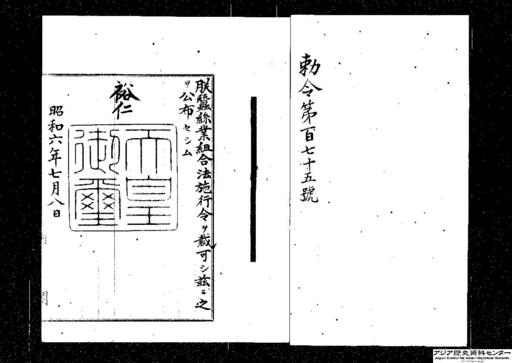 勅令第百七十五號
朕蠶絲業組合法施行令ヲ裁可シ茲ニ之
ヲ公布セシム
裕仁
天皇
御璽
昭和六年七月八日
アジア歴史資料センター
Japan Center for Asian Historical Records